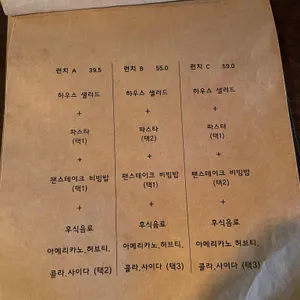 런치 A 39.5
하우스 샐러드
+
파스타
(택1)
+
팬스테이크 비빔밥
(택1)
+
후식음료
아메리카노.허브티.
콜라.사이다 (택2)
런치 B 55.0
하우스 샐러드
+
파스타
(택2)
+
팬스테이크 비빔밥
(택1)
+
후식음료
아메리카노.허브티.
콜라.사이다 (택3)
런치 C 59.0
하우스 샐러드
+
파스타
(택1)
+
팬스테이크 비빔밥
(택2)
+
후식음료
아메리카노.허브티.
콜라.사이다 (택3)